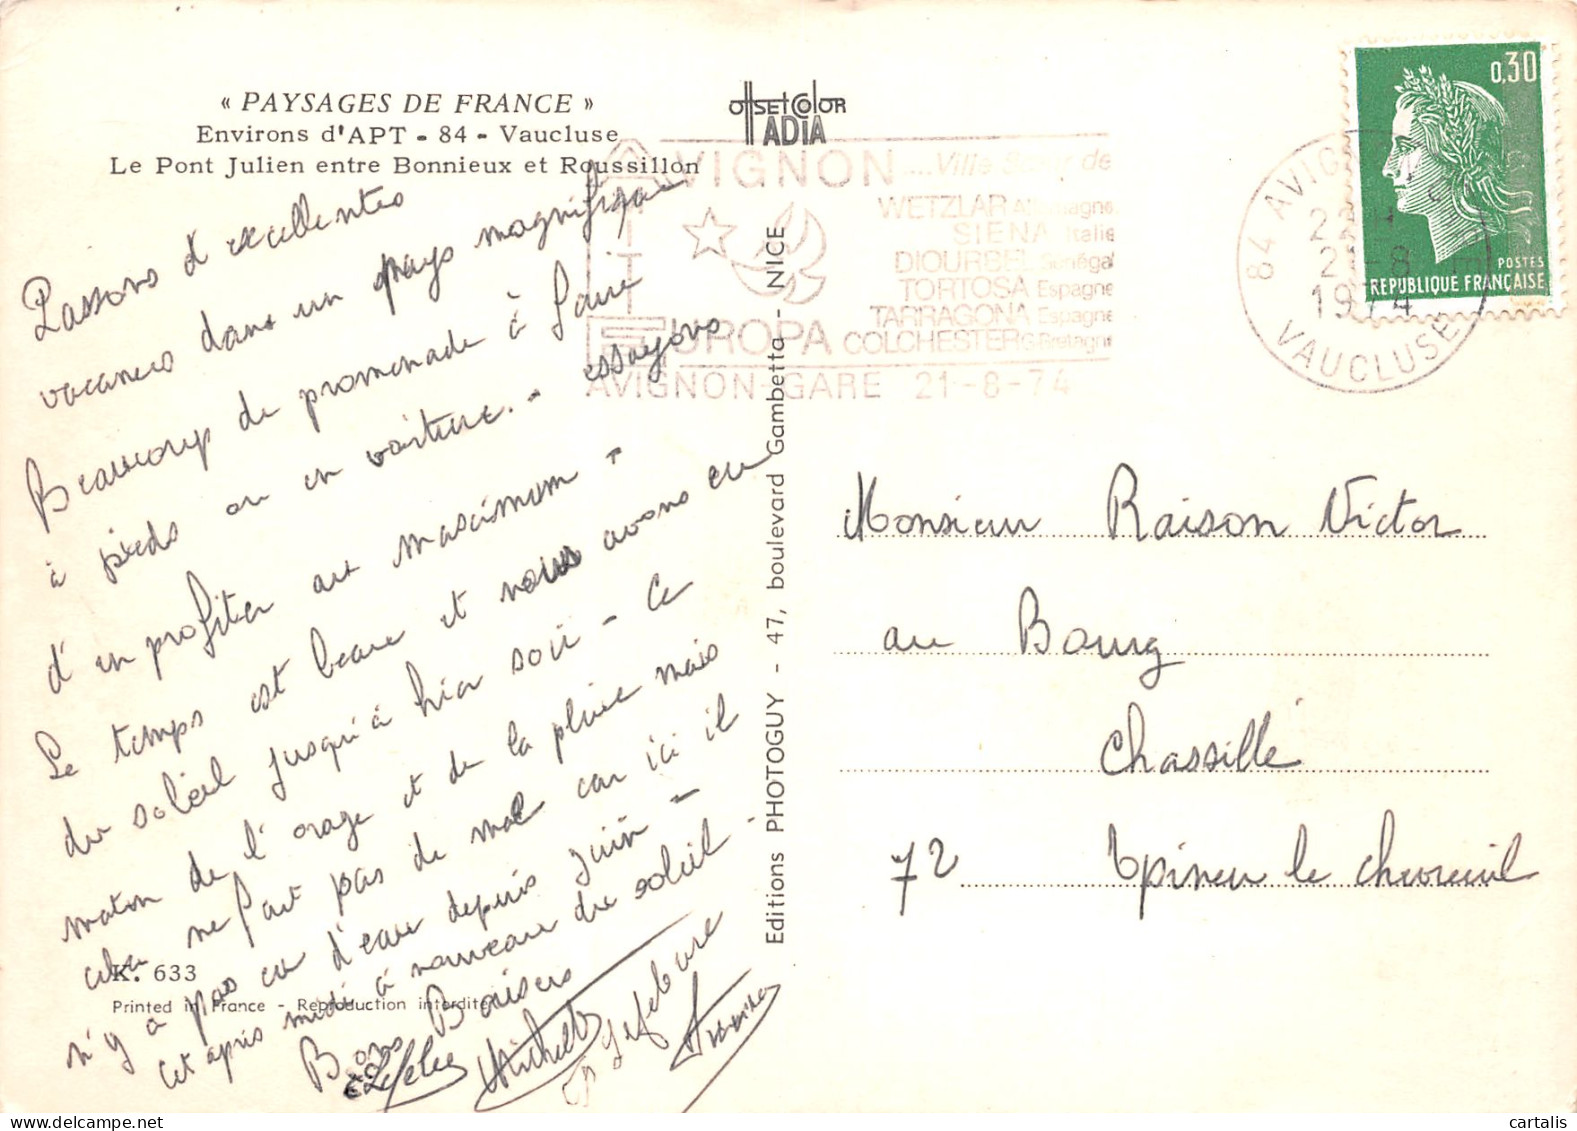 « PAYSAGES DE FRANCE »
Environs d'APT - 84 - Vaucluse
Le Pont Julien entre Bonnieux et Roussillon
OffSETCOlOR
ADIA
AVIGNON ....Ville Soeur de
WETZLAR Allemagne
SIENA Italie
DIOURBEL Sénégal
TORTOSA Espagne
TARRAGONA Espagne
EUROPA COLCHESTER G. Bretagne
AVIGNON-GARE 21-8-74
84 AVIGNON
21-8
1974
VAUCLUSE
0,30
POSTES
REPUBLIQUE FRANÇAISE
Passons d'excellentes
vacances dans un pays magnifique
Beaucoup de promenade à faire
à pieds ou en voiture. - essayons
d'en profiter au maximum -
Le temps est beau et nous avons eu
du soleil jusqu'à hier soir - Ce
matin de l'orage et de la pluie mais
cela ne fait pas de mal car ici il
n'y a pas eu d'eau depuis juin -
Cet après midi à nouveau du soleil -
Bons Baisers
Lefebvre
Editions PHOTOGUY - 47, boulevard Gambetta - NICE
Monsieur Raison Victor
au Bourg
Chassillé
72 Epineu le chevreuil
K. 633
Printed in France - Reproduction interdite
cartalis.com